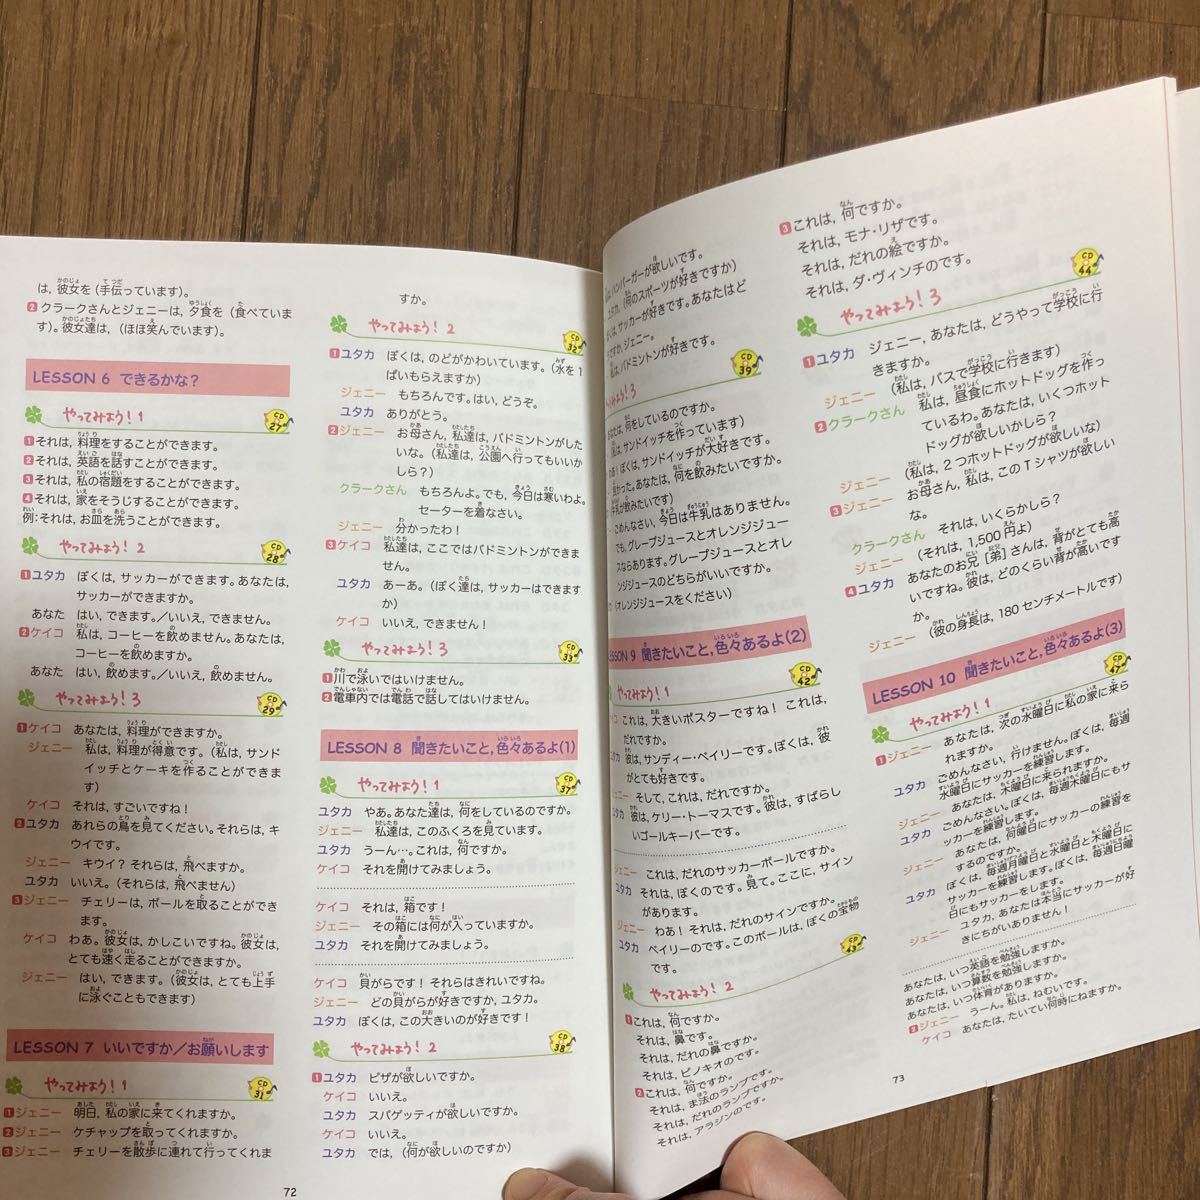 は，彼女を（手伝っています）。
2 クラークさんとジェニーは，夕食を（食べていま
す）。彼女達は，（ほほ笑んでいます）。
LESSON 6 できるかな？
やってみよう！1
CD 27
1 それは，料理をすることができます。
2 それは，英語を話すことができます。
3 それは，私の宿題をすることができます。
4 それは，家をそうじすることができます。
例：それは，お皿を洗うことができます。
やってみよう！2
CD 28
1 ユタカ ぼくは，サッカーができます。あなたは，
サッカーができますか。
あなた はい，できます。／いいえ，できません。
2 ケイコ 私は，コーヒーを飲めません。あなたは，
コーヒーを飲めますか。
あなた はい，飲めます。／いいえ，飲めません。
やってみよう！3
CD 29
1 ケイコ あなたは，料理ができますか。
ジェニー 私は，料理が得意です。（私は，サンド
イッチとケーキを作ることができま
す）
ケイコ それは，すごいですね！
2 ユタカ あれらの鳥を見てください。それらは，キ
ウイです。
ジェニー キウイ？ それらは，飛べますか。
ユタカ いいえ。（それらは，飛べません）
3 ジェニー チェリーは，ボールを取ることができ
ます。
ケイコ わあ。彼女は，かしこいですね。彼女は，
とても速く走ることができますか。
ジェニー はい，できます。（彼女は，とても上手
に泳ぐこともできます）
LESSON 7 いいですか／お願いします
やってみよう！1
CD 31
1 ジェニー 明日，私の家に来てくれますか。
2 ジェニー ケチャップを取ってくれますか。
3 ジェニー チェリーを散歩に連れて行ってくれま
すか。
やってみよう！2
CD 32
1 ユタカ ぼくは，のどがかわいています。（水を1
ぱいもらえますか）
ジェニー もちろんです。はい，どうぞ。
ユタカ ありがとう。
2 ジェニー お母さん，私達は，バドミントンがした
いな。（私達は，公園へ行ってもいいか
しら？）
クラークさん もちろんよ。でも，今日は寒いわよ。
セーターを着なさい。
ジェニー 分かったわ！
3 ケイコ 私達は，ここではバドミントンができま
せん。
ユタカ あーあ。（ぼく達は，サッカーはできます
か）
ケイコ いいえ，できません！
やってみよう！3
CD 33
1 川で泳いではいけません。
2 電車内では電話で話してはいけません。
LESSON 8 聞きたいこと，色々あるよ(1)
やってみよう！1
CD 37
ユタカ やあ。あなた達は，何をしているのですか。
ジェニー 私達は，このふくろを見ています。
ユタカ うーん…。これは，何ですか。
ケイコ それを開けてみましょう。
ケイコ それは，箱です！
ジェニー その箱には何が入っていますか。
ユタカ それを開けてみましょう。
ケイコ 貝がらです！それらはきれいですね。
ジェニー どの貝がらが好きですか，ユタカ。
ユタカ ぼくは，この大きいのが好きです！
やってみよう！2
CD 38
1 ユタカ ピザが欲しいですか。
ケイコ いいえ。
ユタカ スパゲッティが欲しいですか。
ケイコ いいえ。
ユタカ では，（何が欲しいのですか）
72
ハンバーガーが欲しいです。
ユタカ，（何のスポーツが好きですか）
くは，サッカーが好きです。あなたはど
うですか，ジェニー。
は，バドミントンが好きです。
CD 39
よう！3
なたは，何をしているのですか。
私は，サンドイッチを作っています）
あ！ぼくは，サンドイッチが大好きです。
かった。あなたは，何を飲みたいですか。
乳が飲みたいです）
ごめんなさい，今日は牛乳はありません。
でも，グレープジュースとオレンジジュー
スならあります。グレープジュースとオレ
ンジジュースのどちらがいいですか。
（オレンジジュースをください）
LESSON 9 聞きたいこと，色々あるよ(2)
やってみよう！1
CD 42
これは，大きいポスターですね！ これは，
だれですか。
彼は，サンディー・ベイリーです。ぼくは，彼
がとても好きです。
ジェニー そして，これは，だれですか。
ユタカ 彼は，ケリー・トーマスです。彼は，すばらし
いゴールキーパーです。
ジェニー これは，だれのサッカーボールですか。
ユタカ それは，ぼくのです。見て。ここに，サイン
があります。
ジェニー わあ！それは，だれのサインですか。
ユタカ ベイリーのです。このボールは，ぼくの宝物
です。
やってみよう！2
CD 43
1 これは，何ですか。
それは，鼻です。
それは，だれの鼻ですか。
それは，ピノキオのです。
2 これは，何ですか。
それは，ま法のランプです。
それは，だれのランプですか。
それは，アラジンのです。
3 これは，何ですか。
それは，モナ・リザです。
それは，だれの絵ですか。
それは，ダ・ヴィンチのです。
やってみよう！3
CD 44
1 ユタカ ジェニー，あなたは，どうやって学校に行
きますか。
ジェニー （私は，バスで学校に行きます）
2 クラークさん 私は，昼食にホットドッグを作っ
ているわ。あなたは，いくつホット
ドッグが欲しいかしら？
ジェニー （私は，2つホットドッグが欲しいな）
3 ジェニー お母さん，私は，このTシャツが欲しい
な。
クラークさん それは，いくらかしら？
ジェニー （それは，1,500円よ）
4 ユタカ あなたのお兄［弟］さんは，背がとても高
いですね。彼は，どのくらい背が高いです
か。
ジェニー （彼の身長は，180センチメートルです）
LESSON 10 聞きたいこと，色々あるよ(3)
やってみよう！1
CD 47
1 ジェニー あなたは，次の水曜日に私の家に来ら
れますか。
ユタカ ごめんなさい，行けません。ぼくは，毎週
水曜日にサッカーを練習します。
ジェニー あなたは，木曜日に来られますか。
ユタカ ごめんなさい。ぼくは，毎週木曜日にもサ
ッカーを練習します。
ジェニー あなたは，何曜日にサッカーの練習を
するのですか。
ユタカ ぼくは，毎週月曜日と水曜日と木曜日に
サッカーを練習します。ぼくは，毎週日曜
日にもサッカーをします。
ジェニー ユタカ，あなたは本当にサッカーが好
きにちがいありません！
あなたは，いつ英語を勉強しますか。
あなたは，いつ算数を勉強しますか。
あなたは，いつ体育がありますか。
2 ジェニー うーん。私は，ねむいです。
ケイコ あなたは，たいてい何時にねますか。
73